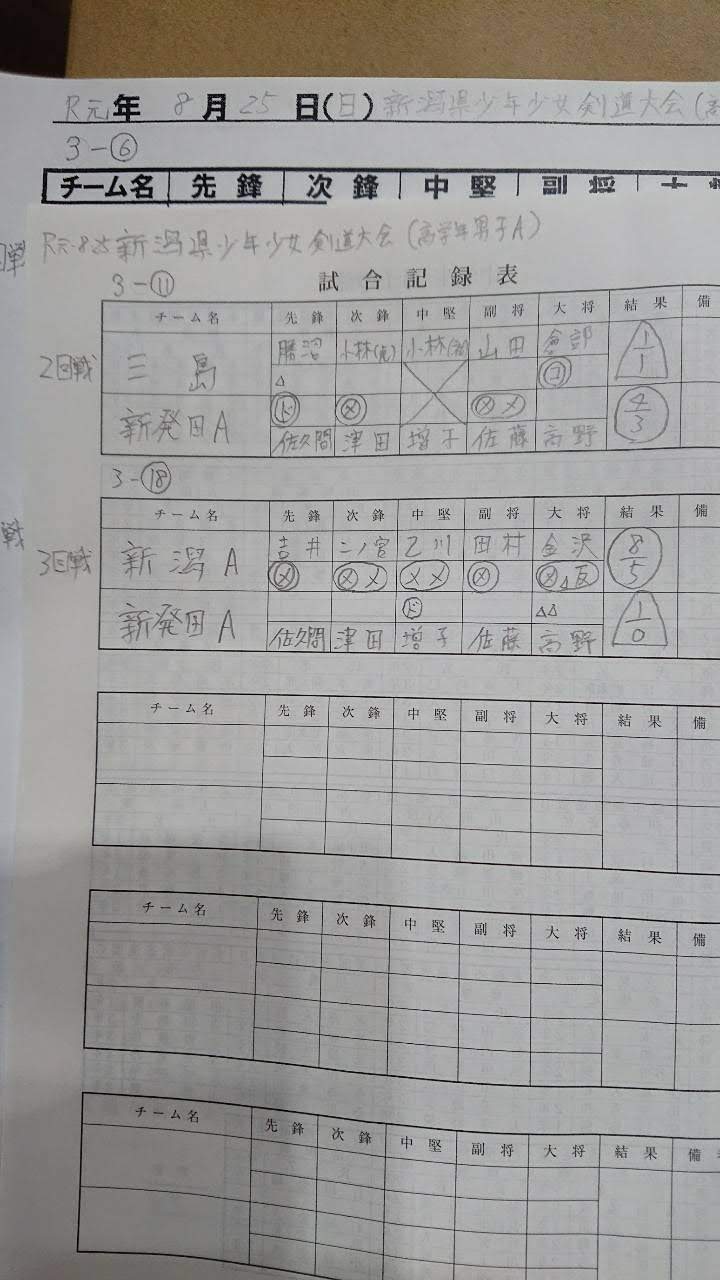 R元年 8月25日(日) 新潟県少年少女剣道大会(高
3-⑥
チーム名 先鋒 次鋒 中堅 副将
R元.8.25 新潟県少年少女剣道大会(高学年男子A)
3-⑪ 試合記録表
チーム名 先鋒 次鋒 中堅 副将 大将 結果 備
2回戦 三島 勝沼 小林(虎) 山田 1/1
△ コ
新発田A ド メ メメ 4/3
佐久間 津田 増子 佐藤 高野
3-⑱
チーム名 先鋒 次鋒 中堅 副将 大将 結果 備
3回戦 新潟A 吉井 二ノ宮 乙川 田村 金沢 8/5
メ メメ メメ メ メ△反
新発田A ド △△ 1/0
佐久間 津田 増子 佐藤 高野
チーム名 先鋒 次鋒 中堅 副将 大将 結果 備
チーム名 先鋒 次鋒 中堅 副将 大将 結果 備
チーム名 先鋒 次鋒 中堅 副将 大将 結果 備